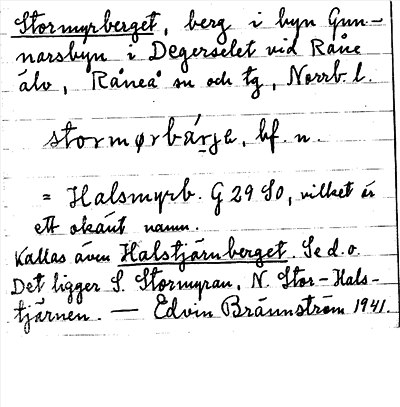 Stormyrberget, berg i byn Gun-
narsbyn i Degerselet vid Råne
älv, Råneå sn och tg, Norrb. l.
stormørbárje, bf. n.
= Halsmyrb. G 29 SO, vilket är
ett okänt namn.
Kallas även Halstjärnberget. Se d.o.
Det ligger S. Stormyran, N. Stor-Hals-
tjärnen. — Edvin Brännström 1941.